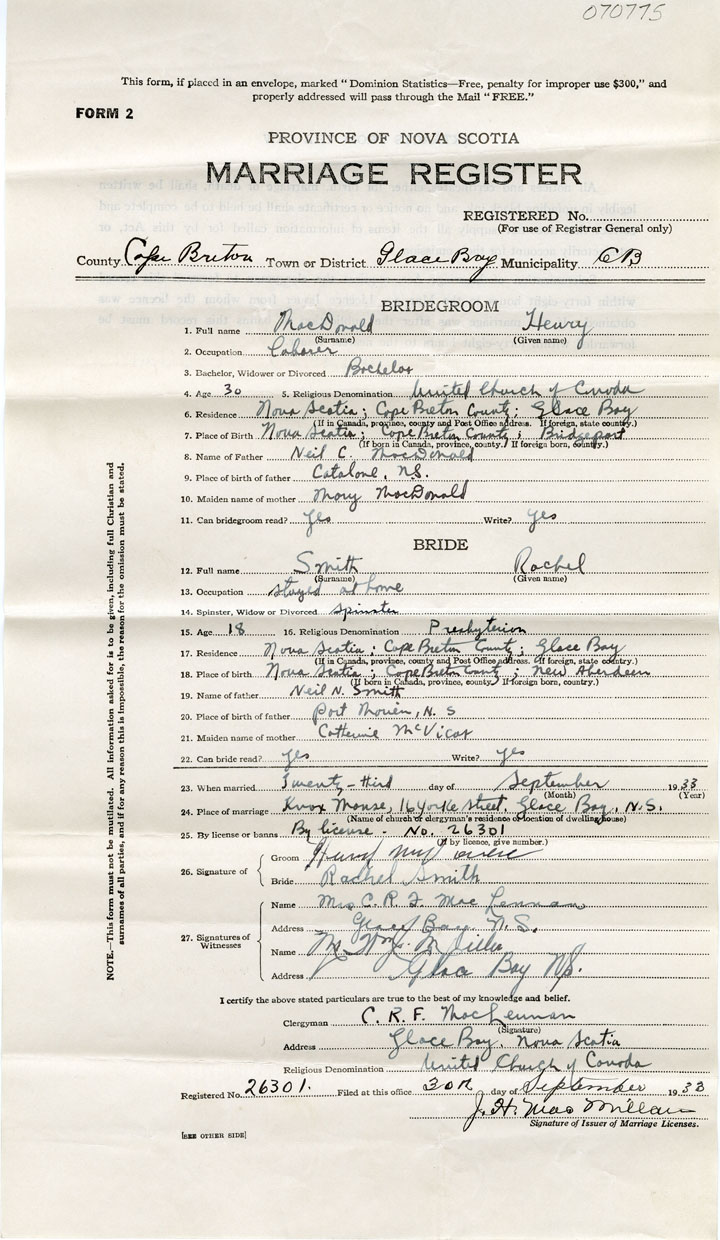 070775
This form, if placed in an envelope, marked “Dominion Statistics—Free, penalty for improper use $300,” and
properly addressed will pass through the Mail “FREE.”
FORM 2
PROVINCE OF NOVA SCOTIA
MARRIAGE REGISTER
REGISTERED No.
(For use of Registrar General only)
County Cape Breton Town or District Glace Bay Municipality CB
BRIDEGROOM
1. Full name MacDonald Henry
(Surname) (Given name)
2. Occupation Laborer
3. Bachelor, Widower or Divorced Bachelor
4. Age 30 5. Religious Denomination United Church of Canada
6. Residence Nova Scotia; Cape Breton County; Glace Bay
(If in Canada, province, county and Post Office address. If foreign, state country.)
7. Place of Birth Nova Scotia; Cape Breton County; Bridgeport
(If born in Canada, province, county. If foreign born, country.)
8. Name of Father Neil C. MacDonald
9. Place of birth of father Catalone, N.S.
10. Maiden name of mother Mary MacDonald
11. Can bridegroom read? yes Write? yes
BRIDE
12. Full name Smith Rachel
(Surname) (Given name)
13. Occupation stayed at home
14. Spinster, Widow or Divorced spinster
15. Age 18 16. Religious Denomination Presbyterian
17. Residence Nova Scotia; Cape Breton County; Glace Bay
(If in Canada, province, county and Post Office address. If foreign, state country.)
18. Place of birth Nova Scotia; Cape Breton County; New Aberdeen
(If born in Canada, province, county. If foreign born, country.)
19. Name of father Neil N. Smith
20. Place of birth of father Port Morien, N. S
21. Maiden name of mother Catherine McVicar
22. Can bride read? yes Write? yes
23. When married Twenty-third day of September 1933
(Month) (Year)
24. Place of marriage Knox Manse, 16 Yorke Street, Glace Bay, N.S.
(Name of church or clergyman's residence or location of dwelling house)
25. By license or banns By license - No. 26301
(If by licence, give number.)
26. Signature of
Groom Henry
Bride Rachel Smith
27. Signatures of Witnesses
Name Mrs C. R. F. MacLennan
Address Glace Bay N.S.
Name
Address Glace Bay NS.
I certify the above stated particulars are true to the best of my knowledge and belief.
Clergyman C. R. F. MacLennan
(Signature)
Address Glace Bay, Nova Scotia
Religious Denomination United Church of Canada
Registered No. 26301. Filed at this office day of September 1933
J. H. MacMillan
Signature of Issuer of Marriage Licenses.
[SEE OTHER SIDE]
NOTE.—This form must not be mutilated. All information asked for is to be given, including full Christian and
surnames of all parties, and if for any reason this is impossible, the reason for the omission must be stated.